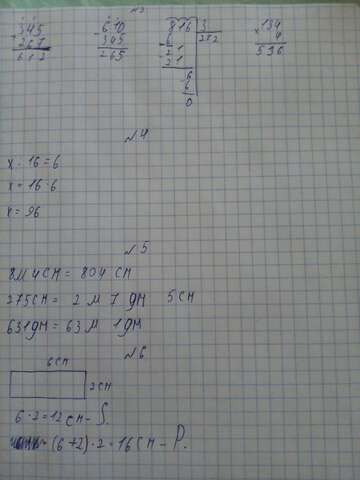 №3
345 + 267 = 612
610 - 345 = 265
816 | 3
6 | 272
21
21
6
6
0
134 × 4 = 536
№4
x : 16 = 6
x = 16 · 6
x = 96
№5
8м 4см = 804 см
275см = 2 м 7 дм 5 см
631дм = 63 м 1 дм
№6
6см
2см
6 · 2 = 12 см - S.
(6 + 2) · 2 = 16 см - P.